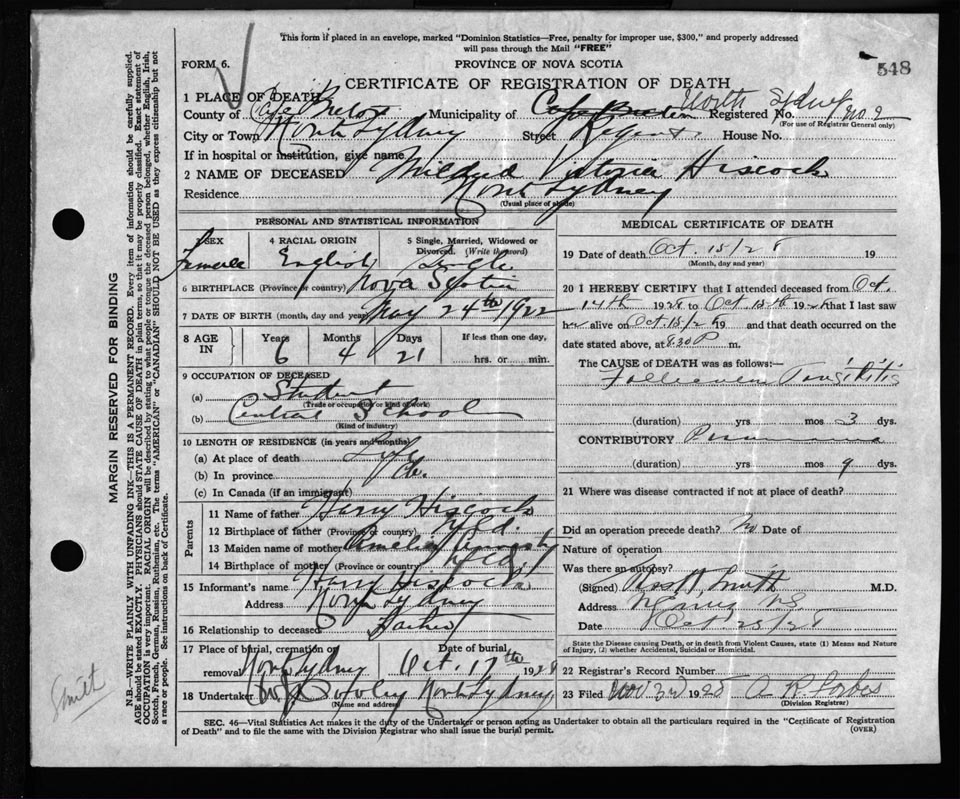 This form if placed in an envelope, marked "Dominion Statistics—Free, penalty for improper use, $300," and properly addressed
will pass through the Mail "FREE"
FORM 6. PROVINCE OF NOVA SCOTIA
548
CERTIFICATE OF REGISTRATION OF DEATH
1 PLACE OF DEATH
County of Cape Breton Municipality of Cape Breton North Sydney Registered No.
(For use of Registrar General only)
City or Town North Sydney Street Regent House No.
If in hospital or institution, give name
2 NAME OF DECEASED Mildred Victoria Hiscock
Residence North Sydney
(Usual place of abode)
PERSONAL AND STATISTICAL INFORMATION
3 SEX Female 4 RACIAL ORIGIN English 5 Single, Married, Widowed or Divorced. (Write the word) Single
6 BIRTHPLACE (Province or country) Nova Scotia
7 DATE OF BIRTH (month, day and year) May 24th 1922
8 AGE IN Years 6 Months 4 Days 21 If less than one day, hrs. or min.
9 OCCUPATION OF DECEASED
(a) Student
(Trade or occupation or kind of work)
(b) Central School
(Kind of industry)
10 LENGTH OF RESIDENCE (in years and months)
(a) At place of death Life
(b) In province
(c) In Canada (if an immigrant)
Parents
11 Name of father Harry Hiscock
12 Birthplace of father (Province or country) Nfld.
13 Maiden name of mother Amelia
14 Birthplace of mother (Province or country)
15 Informant's name Harry Hiscock
Address North Sydney
16 Relationship to deceased Father
17 Place of burial, cremation or removal North Sydney Date of burial Oct. 17th 1928
18 Undertaker North Sydney
(Name and address)
MEDICAL CERTIFICATE OF DEATH
19 Date of death Oct. 15/28 19
(Month, day and year)
20 I HEREBY CERTIFY that I attended deceased from Oct.
14th 1928 to Oct. 15th 1928 that I last saw
her alive on Oct. 15/28 19 and that death occurred on the
date stated above, at 8.30 P m.
The CAUSE of DEATH was as follows:—
Tonsilitis
(duration) yrs mos 3 dys.
CONTRIBUTORY Pneumonia
(duration) yrs mos 9 dys.
21 Where was disease contracted if not at place of death?
Did an operation precede death? No Date of
Nature of operation
Was there an autopsy?
(Signed) Smith M.D.
Address N.S.
Date Oct 25/28
State the Disease causing Death, or in death from Violent Causes, state (1) Means and Nature
of Injury, (2) whether Accidental, Suicidal or Homicidal.
22 Registrar's Record Number
23 Filed Nov 3rd 1928 Forbes
(Division Registrar)
SEC. 46—Vital Statistics Act makes it the duty of the Undertaker or person acting as Undertaker to obtain all the particulars required in the "Certificate of Registration
of Death" and to file the same with the Division Registrar who shall issue the burial permit. (OVER)
MARGIN RESERVED FOR BINDING
N.B.—WRITE PLAINLY WITH UNFADING INK—THIS IS A PERMANENT RECORD. Every item of information should be carefully supplied.
AGE should be stated EXACTLY. PHYSICIANS should STATE CAUSE OF DEATH in plain terms, so that it may be properly classified. Exact statement of
OCCUPATION is very important. RACIAL ORIGIN will be described by stating to what people or tongue the deceased person belonged, whether English, Irish,
Scotch, French, German, Russian, Ruthenian, etc. The terms "AMERICAN" or "CANADIAN" SHOULD NOT BE USED as they express citizenship but not
a race or people. See instructions on back of Certificate.
Smith